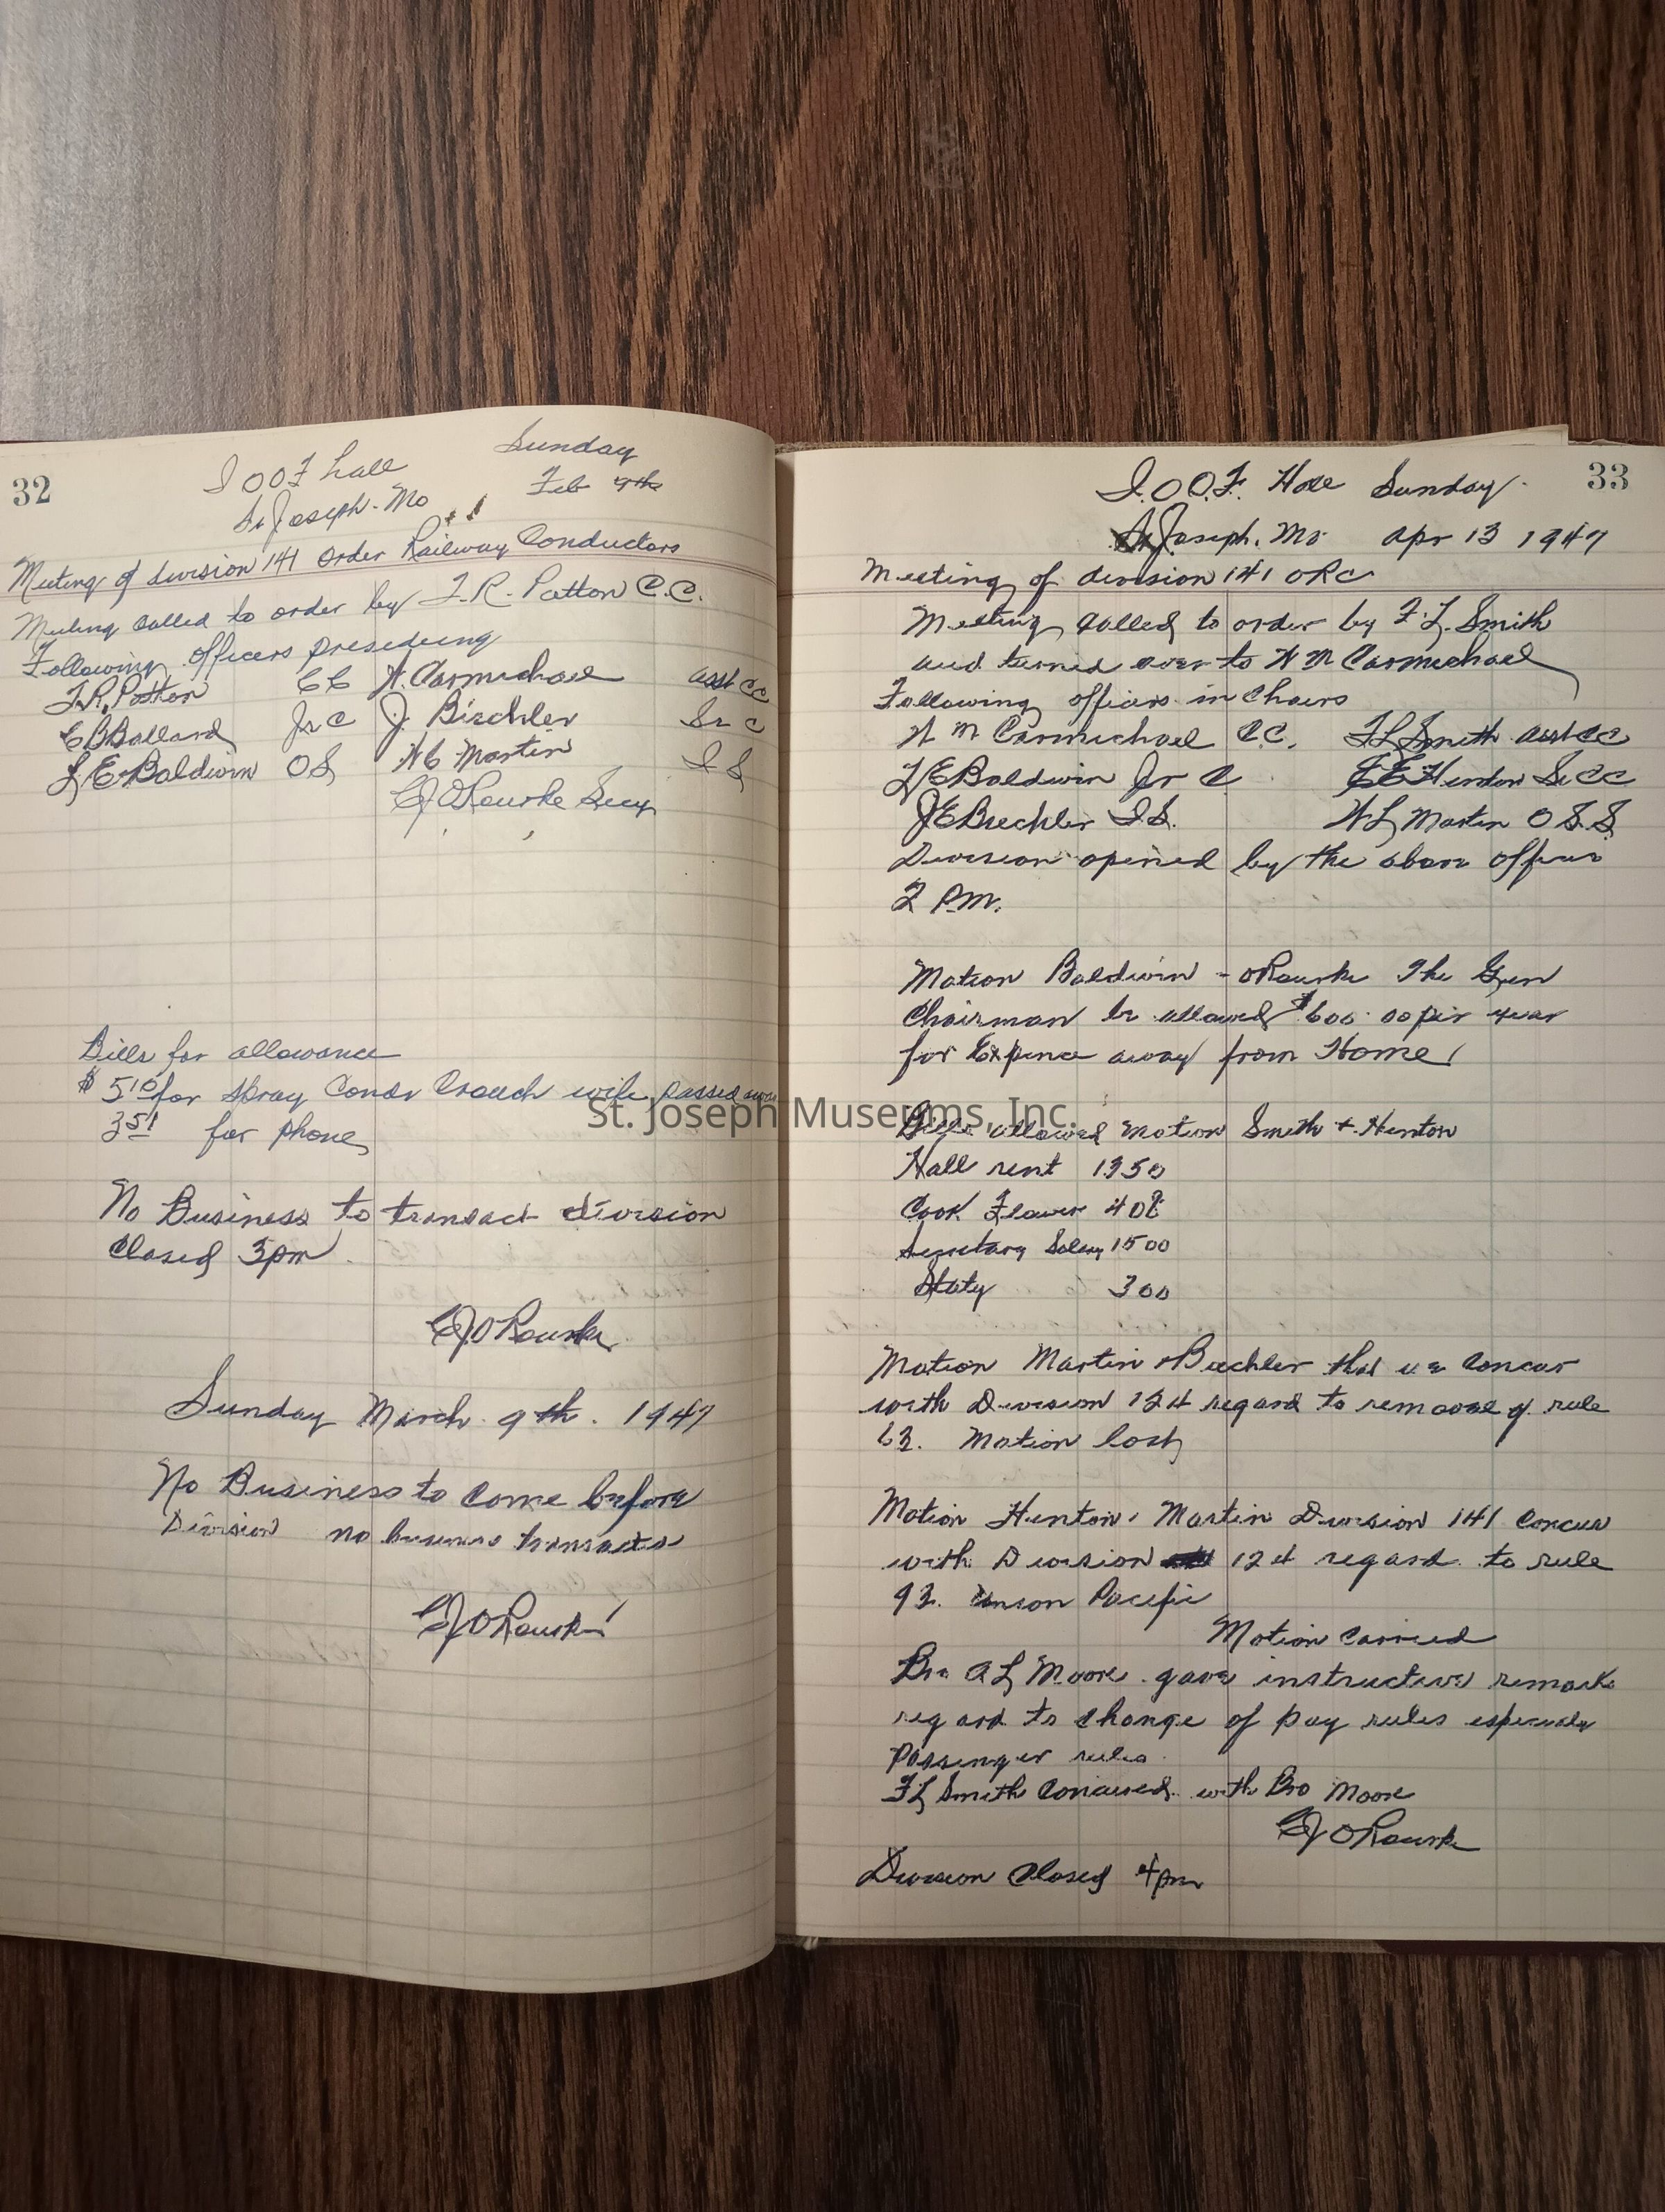 32
I OO F hall Sunday
St Joseph. Mo Feb 9th
Meeting of division 141 order Railway Conductors
Meeting called to order by F. R. Patton C.C.
Following officers presideing
F.R. Patton CC W Carmichael asst CC
C B Ballard Jr C J. Bischler Sr C
L E Baldwin OS W C Martin I S
C J O Rourke Secy
Bills for allowance
$ 5 10 for spray Condr Crouch wife passed away
3 51 for phone
No Business to transact division
Closed 3 pm
C J O Rourke
Sunday March 9th. 1947
No Business to come before
Division no business transacted
C J O Rourke
33
I.O.O.F. Hall Sunday
St Joseph. Mo. Apr 13 1947
Meeting of division 141 ORC
Meeting called to order by F. L. Smith
and turned over to W M Carmichael
Following officers in Chairs
W M Carmichael C C. F L Smith asst CC
L E Baldwin Jr C Henton Sr CC
J E Bischler I S. W L Martin O S.S
Division opened by the above officers
2 P.M.
Motion Baldwin - O Rourke The Gen
Chairman be allowed $600.00 per year
for Expence away from Home
Bills allowed motion Smith + Henton
Hall rent 13 50
Cook Flower 4 08
Secretary Salary 15 00
Staty 3 00
Motion Martin + Bischler that we concur
with Division 124 regard to removal of rule
63. Motion lost
Motion Henton, Martin Division 141 concur
with Division 124 regard to rule
93. Union Pacific
Motion carried
Bro A L Moore gave instructive remarks
regard to change of pay rules especially
Passenger rules
F L Smith concured with Bro Moore
C J O Rourke
Division Closed 4 pm
St. Joseph Museums, Inc.